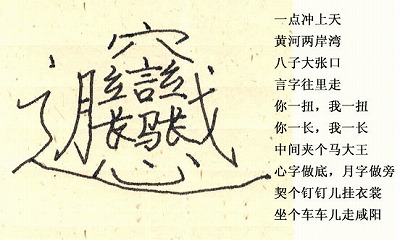 𰻞
一点冲上天
黄河两岸湾
八子大张口
言字往里走
你一扭，我一扭
你一长，我一长
中间夹个马大王
心字做底，月字做旁
契个钉钉儿挂衣裳
坐个车车儿走咸阳